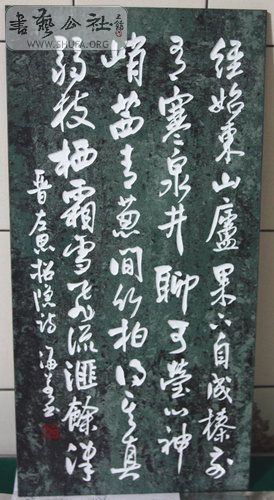 書藝公社
WWW.SHUFA.ORG
经始東山廬果下自成榛前
有寒泉井聊可瑩心神
峭茜青葱間竹柏得其真
弱枝栖霜雪飛流滙餘津
晋左思招隐诗